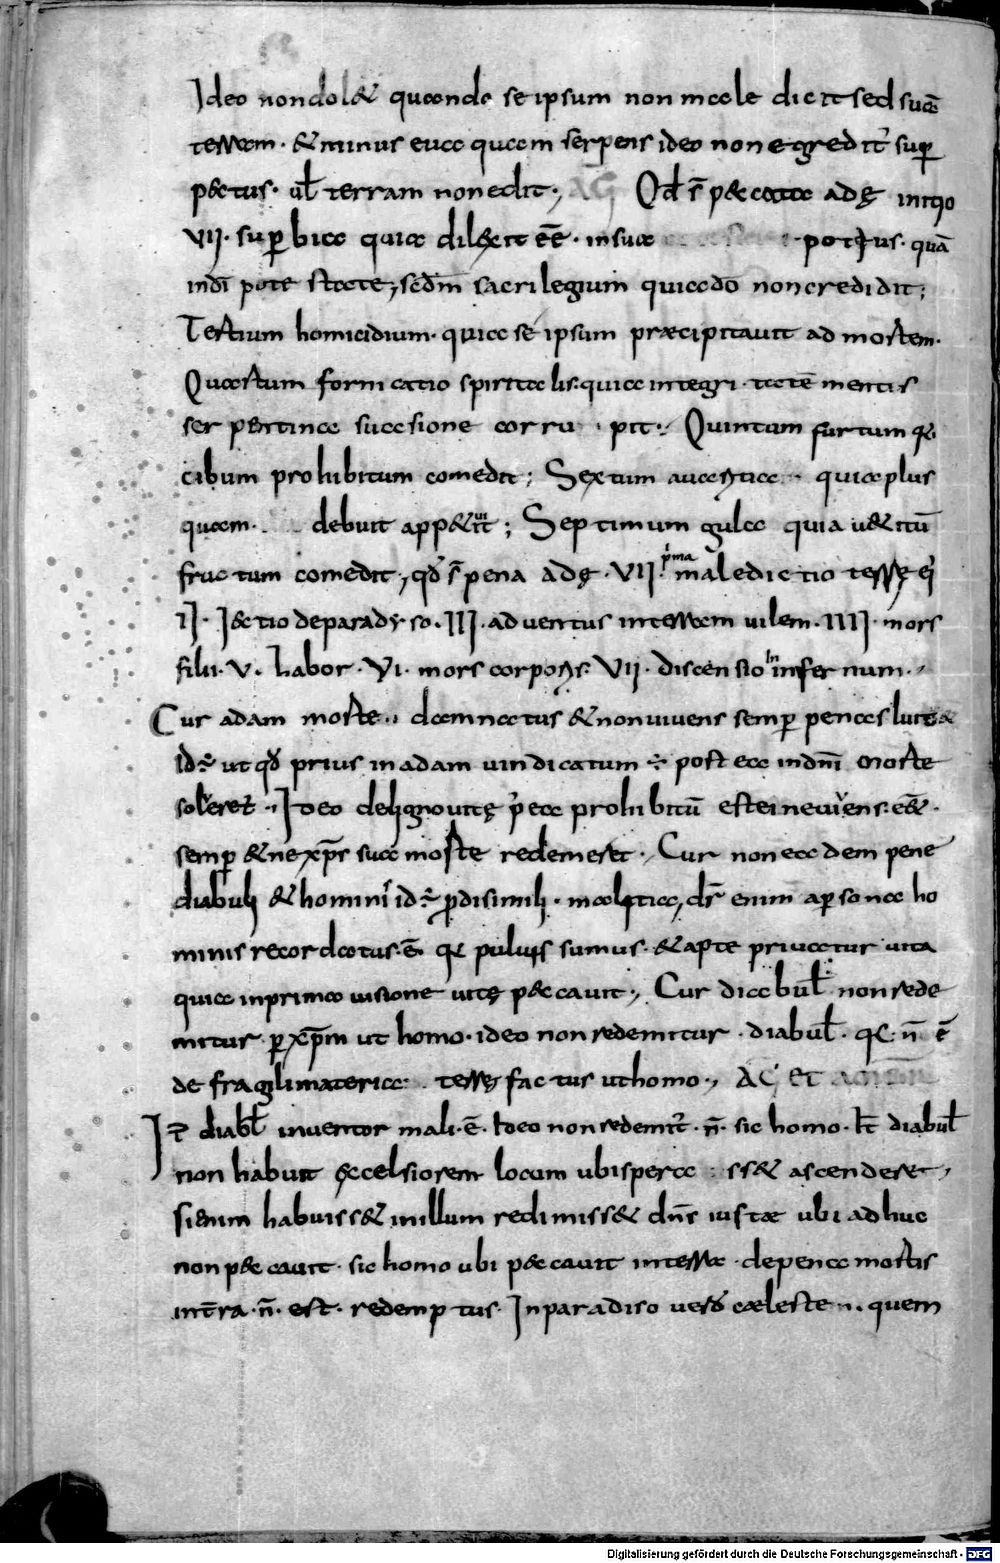 Ideo non dol& quando se ipsum non male dicit sed suā
terram · & minus eua quam serpens ideo non egredit̄ sup̄
p&tus · ul̄ terram non edit; AG Qd s̄ p&cata adę initio
VII · sup̄bia quia dilexit ēē · in sua potius · quā
in dī potestate; scdm̄ sacrilegium quia dō non credidit;
Tertium homicidium · quia se ipsum præcipitauit ad mortem ·
Quartum fornicatio spiritalis · quia integritatē mentis
serpentina suasione corrupit · Quintum furtum q̄
cibum prohibitum comedit; Sextum auaritia quia plus
quam debuit app&iit; Septimum gula quia u&itū
fructum comedit, qd s̄ pena adę · VII · p̄ma maledictio terrę ei
II · I&ctio de paradyso · III · aduentus in terram uilem · IIII · mors
filii · V · Labor · VI · mors corporis · VII · discensio in infernum ·
Cur adam morte damnatus & non uiuens semp̄ penas luit
id÷ ut qd prius in adam uindicatum ÷ postea in dn̄i morte
solueret · Ideo de ligno uitę p̄ea prohibitū est ei ne uiuens ·
semp̄ & ne xp̄s sua morte redemeret · Cur non eadem pene
diabuli & homini id÷ p̄ disimili · malitia, dr̄ enim a p̄sona ho
minis recordatus · ē q̄ puluis sumus · & apte priuatur uita
quia in prima uisione uitę p&cauit, Cur diabul̄ non rede
mitur p̄ xp̄m ut homo · ideo non redemitur · diabul̄ · q̄ · n̄ ē
de fragili materia terrę factus ut homo, AG ET AGUSTIN
Ip̄ diabl̄ inuentor mali · ē · Ideo non redemit̄ · n̄ · sic homo · It̄ diabul̄
non habuit excelsiorem locum ubi spera ss& ascenderet,
si enim habuiss& in illum redimiss& dn̄s iustæ ubi adhuc
non p&cauit · sic homo ubi p&cauit in terra · de pena mortis
in tr̄ra · n̄ · est · redemptus · In paradiso uero cæleste n · quem